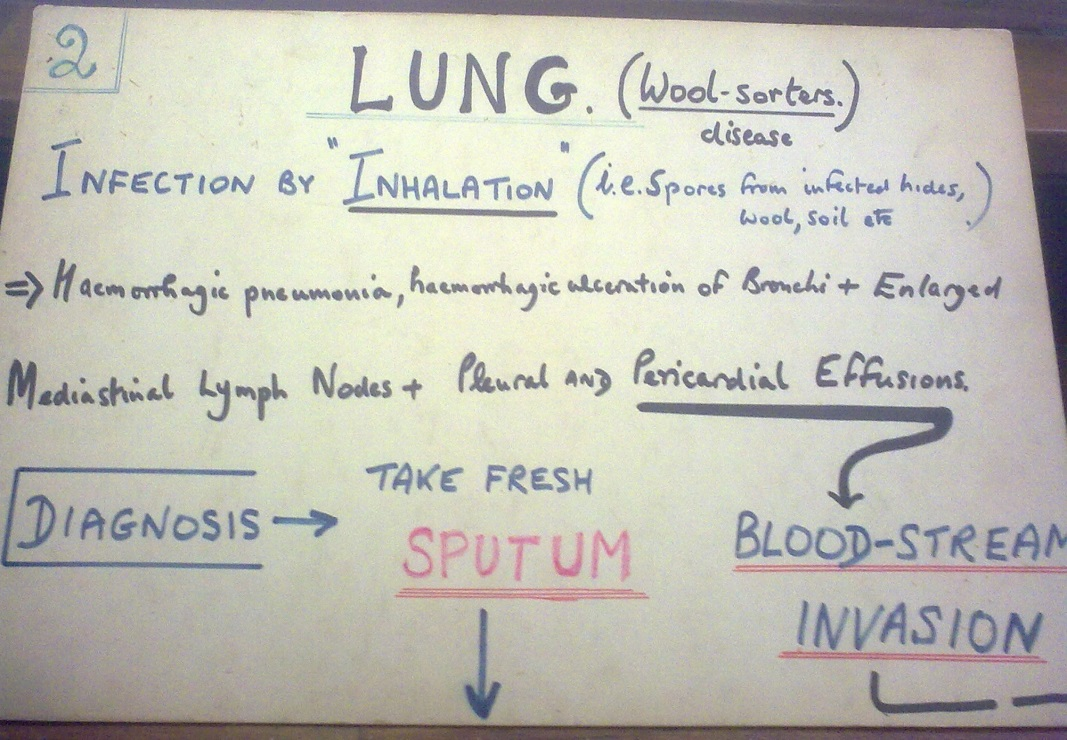 2
LUNG. (Wool-sorters.)
disease
INFECTION BY "INHALATION" (i.e. Spores from infected hides,
wool, soil etc.)
⇒ Haemorrhagic pneumonia, haemorrhagic ulceration of Bronchi + Enlarged
Mediastinal Lymph Nodes + Pleural AND Pericardial Effusions.
DIAGNOSIS → TAKE FRESH
SPUTUM
↓
BLOOD-STREAM
INVASION